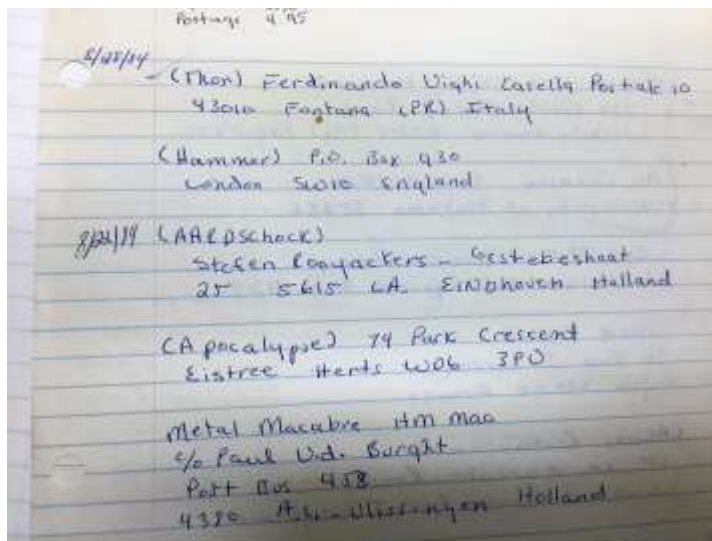 Postage 4.95
8/25/84
(Thor) Ferdinando Vighi Casella Postale 10
43010 Fontana (PR) Italy
(Hammer) P.O. Box 430
London SW10 England
8/26/84 (AARDSchock)
Stefen Rooyackers -
25 5615 LA. EINDhoven Holland
(Apocalypse) 74 Park Crescent
Elstree Herts WD6 3PU
Metal Macabre HM Mag
c/o Paul V.d. Burght
Post Bus 458
4380 Holland